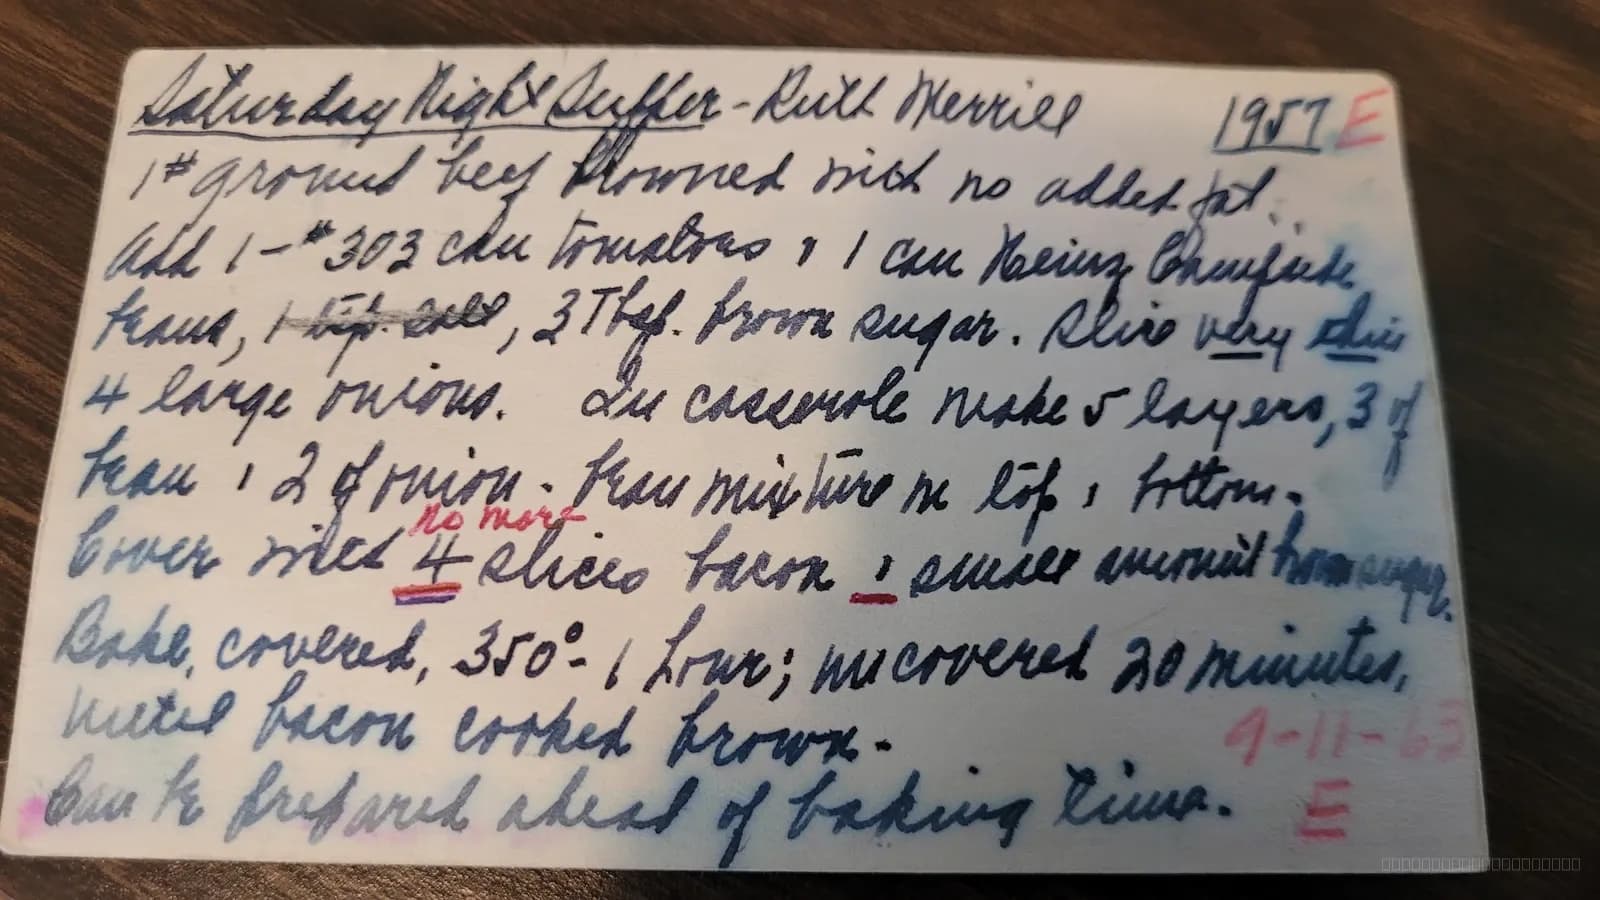 Saturday Night Supper - Ruth Merrill 1957 E
1# ground beef browned with no added fat.
Add 1 - #303 can tomatoes & 1 can Heinz Campside
beans, 1 tsp. salt, 3 Tbsp. brown sugar. Slice very thin
4 large onions. In casserole make 5 layers, 3 of
bean & 2 of onion - bean mixture on top & bottom.
no more
Cover with 4 slices bacon & small amount brown sugar.
Bake, covered, 350° - 1 hour; uncovered 20 minutes,
until bacon cooked brown.
9-11-63
Can be prepared ahead of baking time.
E